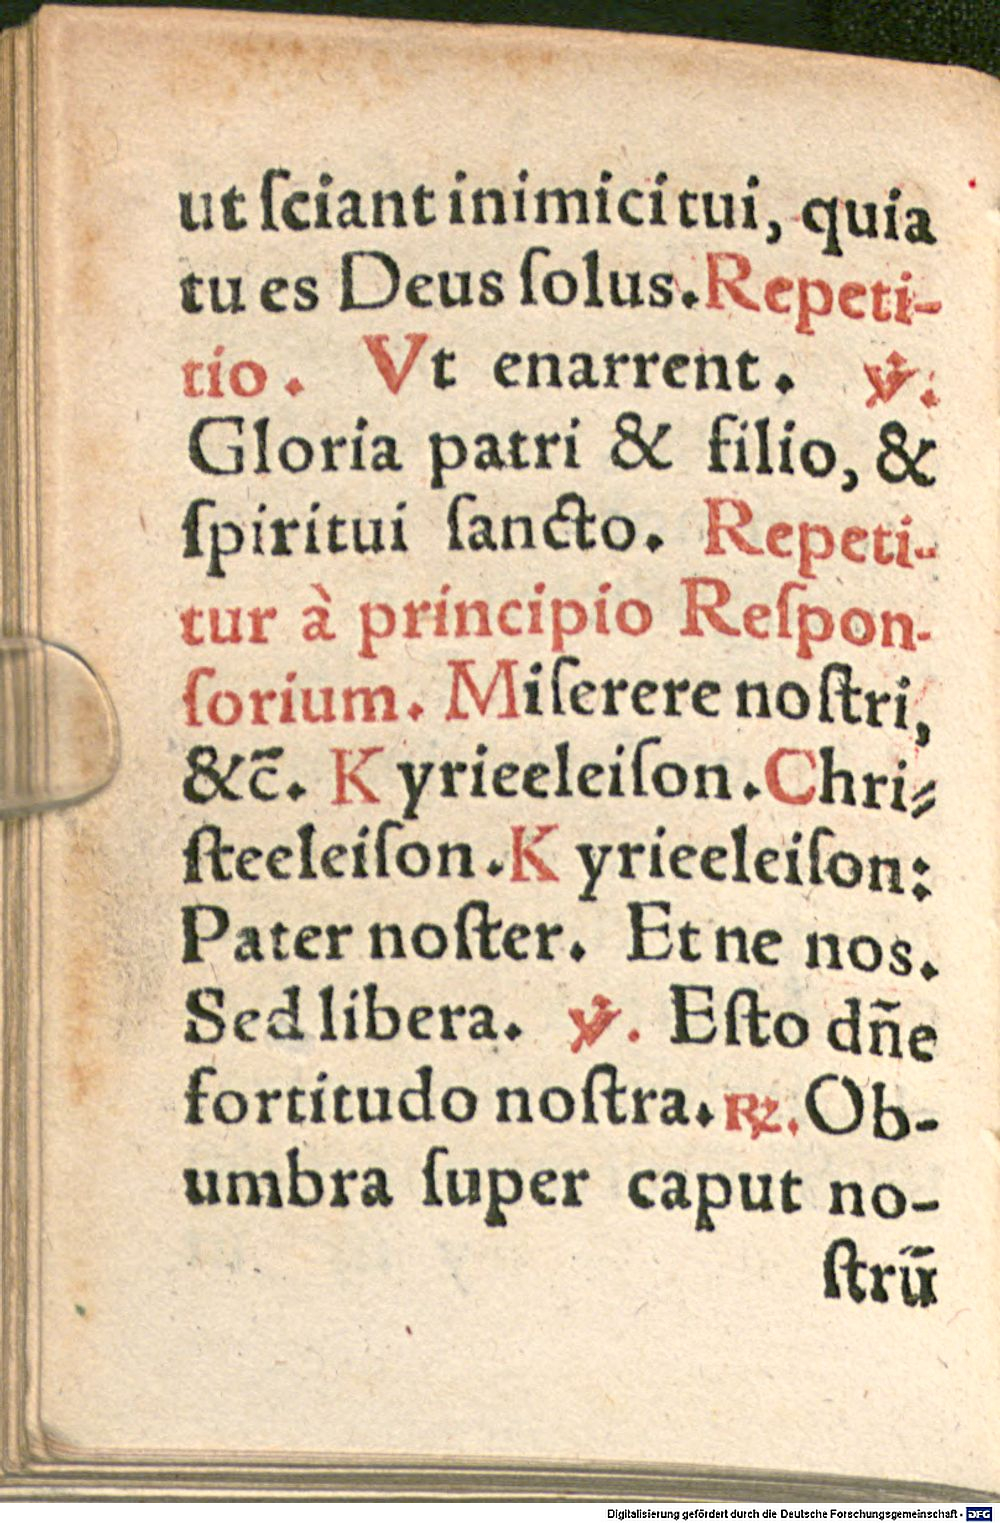 ut ſciant inimici tui, quia
tu es Deus ſolus. Repeti-
tio. Vt enarrent. ℣.
Gloria patri & filio, &
ſpiritui ſancto. Repeti-
tur à principio Reſpon-
ſorium. Miſerere noſtri,
&c̄. Kyrieeleiſon. Chri⸗
ſteeleiſon. Kyrieeleiſon:
Pater noſter. Et ne nos.
Sed libera. ℣. Eſto dñe
fortitudo noſtra. ℞. Ob-
umbra ſuper caput no-
ſtrū
Digitalisierung gefördert durch die Deutsche Forschungsgemeinschaft - DFG